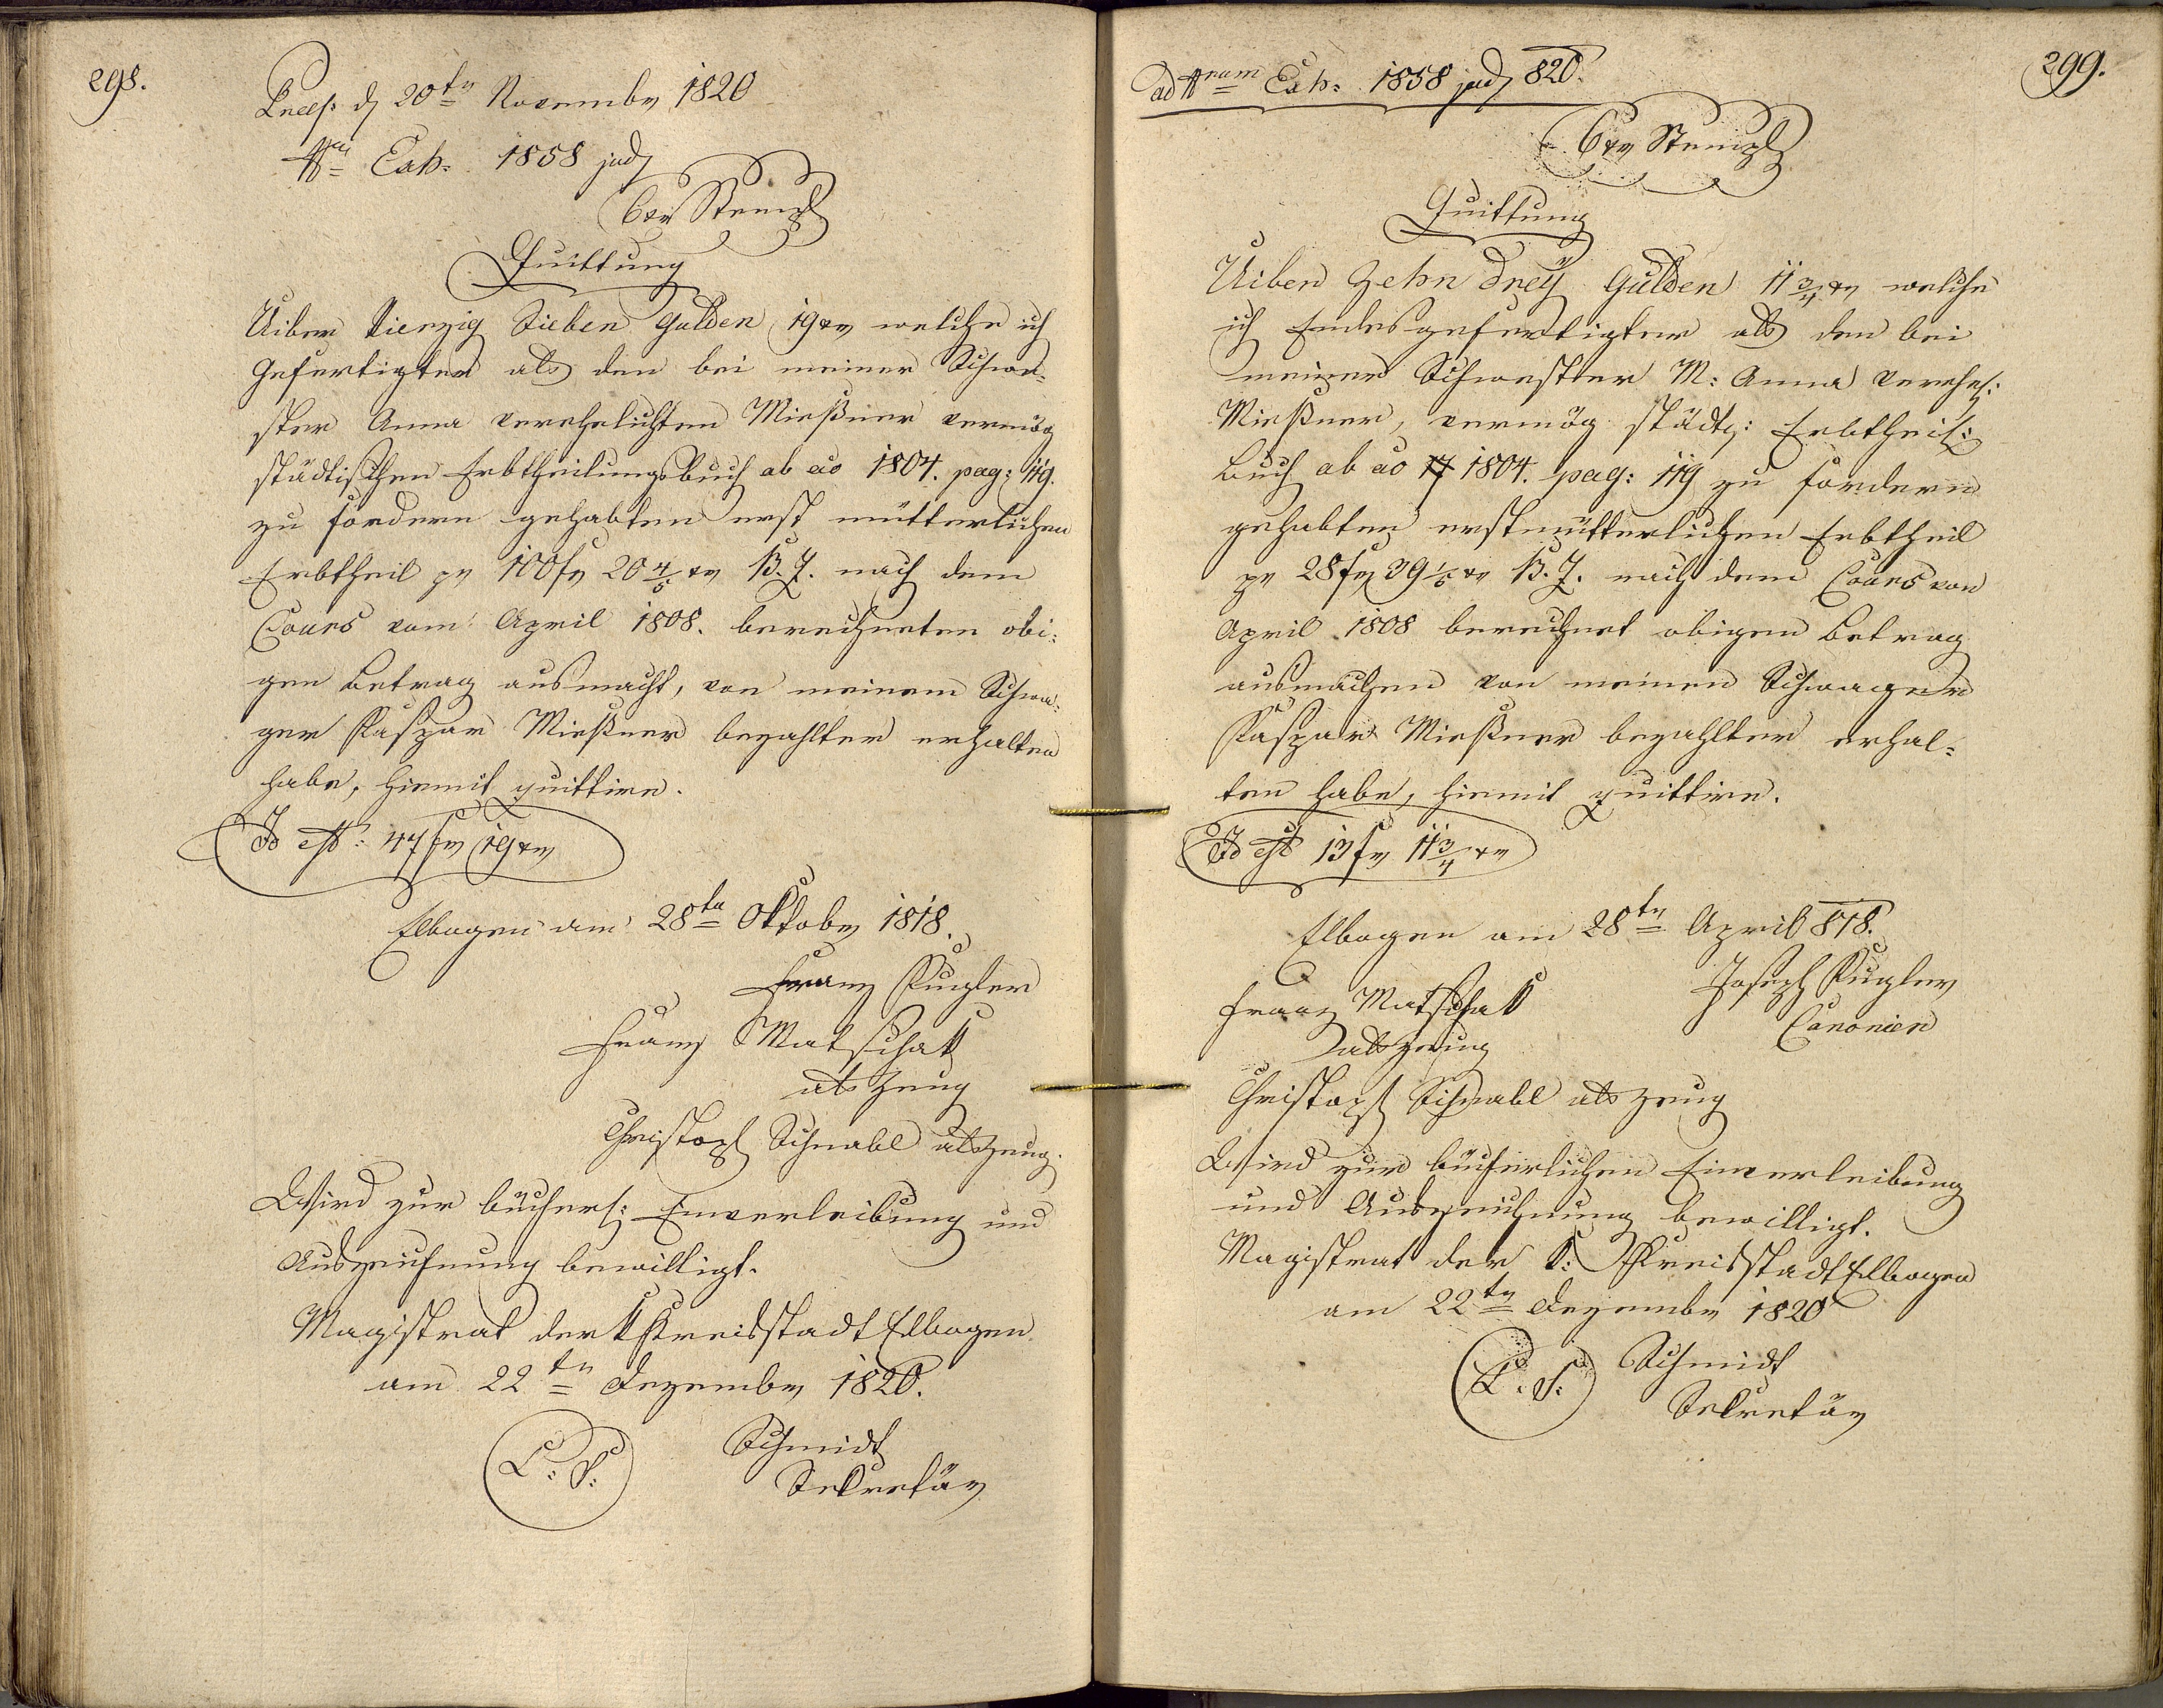 298.
Praes. d 20ten Novembr 1820
Nri Exh. 1858 jud
6xr Stempl
Quittung
Uiber Vierzig Sieben Gulden 19xr welche ich
Gefertigter als den bei meiner Schwe¬
ster Anna verehelichten Mießner vermög
städtischen Erbtheilungsbuch ab ao 1804. pag: 119.
zu fordern gehabten erst mütterlichen
Erbtheil pr 100fr 20 4/5 xr B.Z. nach dem
Cours vom April 1808. berechneten obi:
gen Betrag ausmacht, von meinem Schwa:
ger Kaspar Mießner bezahlter erhalten
habe, hiemit quittire.
Id est: 47fr 19xr
Elbogen am 28ten Oktobr 1818.
Franz Kugler
Franz Matschak
als Zeug
Christoph Schnabl als Zeug.
Wird zur bücherl: Einverleibung und
Auszeichnung bewilligt.
Magistrat der K Kreisstadt Elbogen
am 22ten Dezembr 1820.
L: S: Schmidt
Sekretär
299.
ad Nrum Exh: 1858 jud 820.
6xr Stempl
Quittung
Uiber Zehn drey Gulden 11 3/4 xr welche
ich Endesgefertigter als den bei
meiner Schwester M: Anna verehel:
Mießner, vermög städt: Erbtheil:
Buch ab ao 17 1804. pag: 119 zu fordern
gehabten erstmütterlichen Erbtheil
pr 28fr 39 1/5 xr B.Z. nach dem Cours von
April 1808 berechnet obigen Betrag
ausmachen von meinen Schwager
Kaspar Mießner bezahlter erhal¬
ten habe, hiemit quittire.
Id est 13fr 11 3/4 xr
Elbogen am 28ten April 818.
Joseph Kugler
Canonier
Franz Matschak
als Zeug
Christoph Schnabl als Zeug
Wird zur bücherlichen Einverleibung
und Auszeichnung bewilligt.
Magistrat der K: Kreisstadt Elbogen
am 22ten Dezembr 1820
L. S. Schmidt
Sekretär